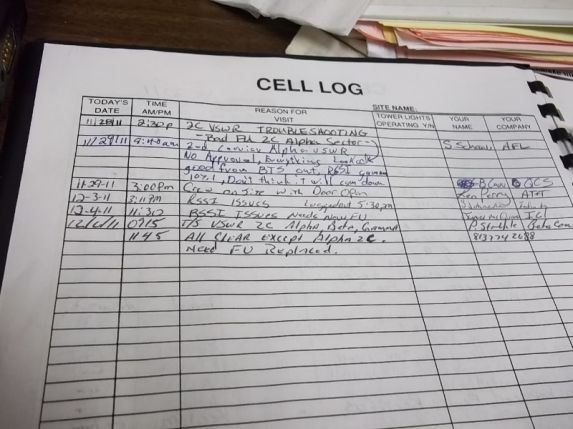 CELL LOG
SITE NAME:
TODAY'S DATE TIME AM/PM REASON FOR VISIT TOWER LIGHTS OPERATING Y/N YOUR NAME YOUR COMPANY
11/28/11 2:30p 2C VSWR TROUBLESHOOTING
- Bad FU 2C Alpha Sector -
11/29/11 2nd Carrier Alpha VSWR S Schaw AFL
No Approval, Everything Looks
good from BTS out, RSSI gamma
Don't think it will come down
11-29-11 3:00 Pm Crew on site with Door Open QCS
12-3-11 3:11 Pm RSSI ISSUES Logged out 5:30 pm Ken Perry
12-4-11 11:30 RSSI ISSUES Needs New FU
12/6/11 0915 T/S VSWR 2C Alpha, Beta, Gamma
1145 All Clear Except Alpha 2C.
Need FU Replaced.